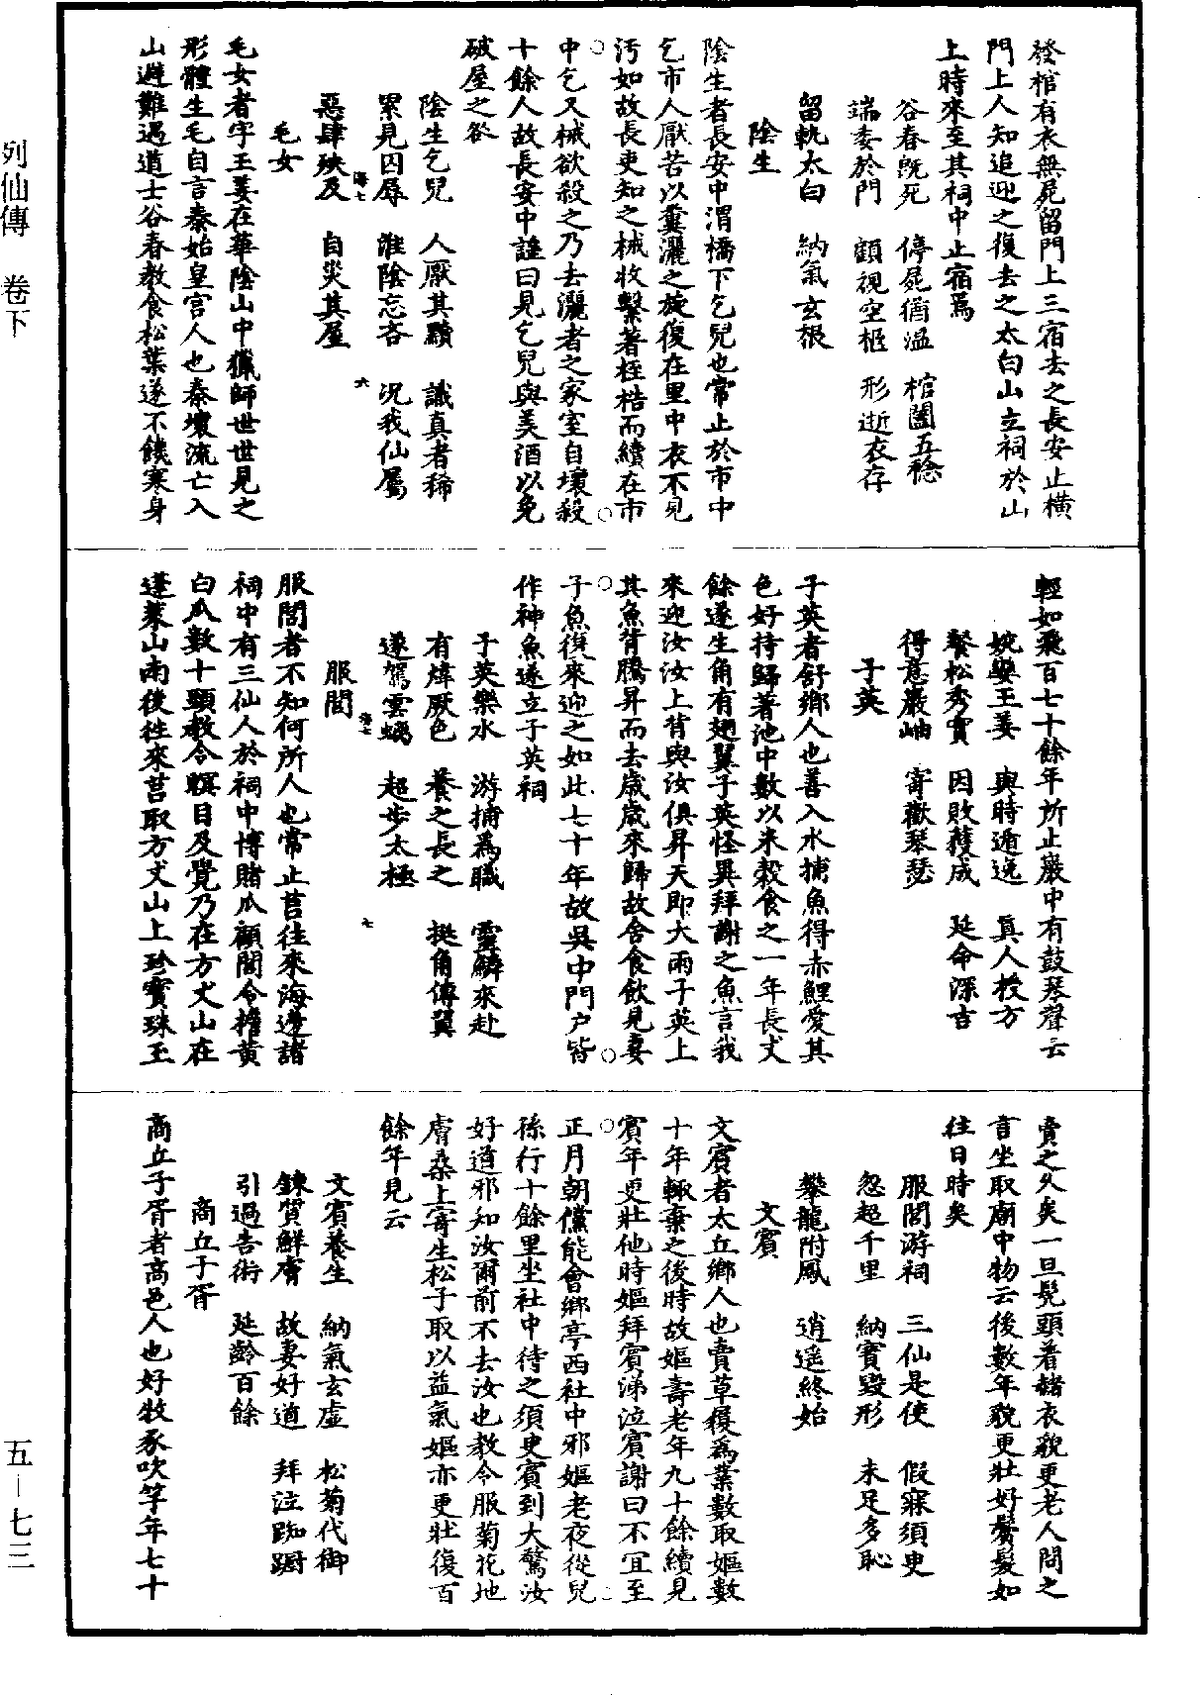 列仙傳 卷下
發棺有衣無屍留門上三宿去之長安止橫
門上人知追迎之復去之太白山立祠於山
上時來至其祠中止宿焉
谷春既死 停屍猶溫 棺闔五稔
端委於門 顧視空柩 形逝衣存
留軌太白 納氣玄根
陰生
陰生者長安中渭橋下乞兒也常止於市中
乞市人厭苦以糞灑之旋復在里中衣不見
污如故長吏知之械收繫著桎梏而續在市
中乞又械欲殺之乃去灑者之家室自壞殺
十餘人故長安中謠曰見乞兒與美酒以免
破屋之咎
陰生乞兒 人厭其黷 識真者稀
累見囚辱 淮陰忘吝 況我仙屬
惡肆殃及 自災其屋
海七
六
毛女
毛女者字玉姜在華陰山中獵師世世見之
形體生毛自言秦始皇宮人也秦壞流亡入
山避難遇道士谷春教食松葉遂不饑寒身
輕如飛百七十餘年所止巖中有鼓琴聲云
婉孌玉姜 與時遁逸 真人授方
餐松秀實 因敗獲成 延命深吉
得意巖岫 寄歡琴瑟
子英
子英者舒鄉人也善入水捕魚得赤鯉愛其
色好持歸著池中數以米穀食之一年長丈
餘遂生角有翅翼子英怪異拜謝之魚言我
來迎汝汝上背與汝俱昇天即大雨子英上
其魚背騰昇而去歲歲來歸故舍食飲見妻
子魚復來迎之如此七十年故吳中門戶皆
作神魚遂立子英祠
子英樂水 游捕為職 靈鱗來赴
有煒厥色 養之長之 挺角傅翼
遂駕雲螭 超步太極
海七
七
服閭
服閭者不知何所人也常止莒往來海邊諸
祠中有三仙人於祠中博賭瓜顧閭令擔黃
白瓜數十頭教令瞑目及覺乃在方丈山在
蓬萊山南後往來莒取方丈山上珍寶珠玉
賣之久矣一旦髡頭著赭衣貌更老人問之
言坐取廟中物云後數年貌更壯好鬢髮如
往日時矣
服閭游祠 三仙是使 假寐須臾
忽超千里 納寶毀形 未足多恥
攀龍附鳳 逍遙終始
文賓
文賓者太丘鄉人也賣草履為業數取嫗數
十年輒棄之後時故嫗壽老年九十餘續見
賓年更壯他時嫗拜賓涕泣賓謝曰不宜至
正月朝儻能會鄉亭西社中邪嫗老夜從兒
孫行十餘里坐社中待之須臾賓到大驚汝
好道邪知汝爾前不去汝也教令服菊花地
膚桑上寄生松子取以益氣嫗亦更壯復百
餘年見云
文賓養生 納氣玄虛 松菊代御
鍊質鮮膚 故妻好道 拜泣踟躕
引過告術 延齡百餘
商丘子胥
商丘子胥者高邑人也好牧豕吹竽年七十
五—七三